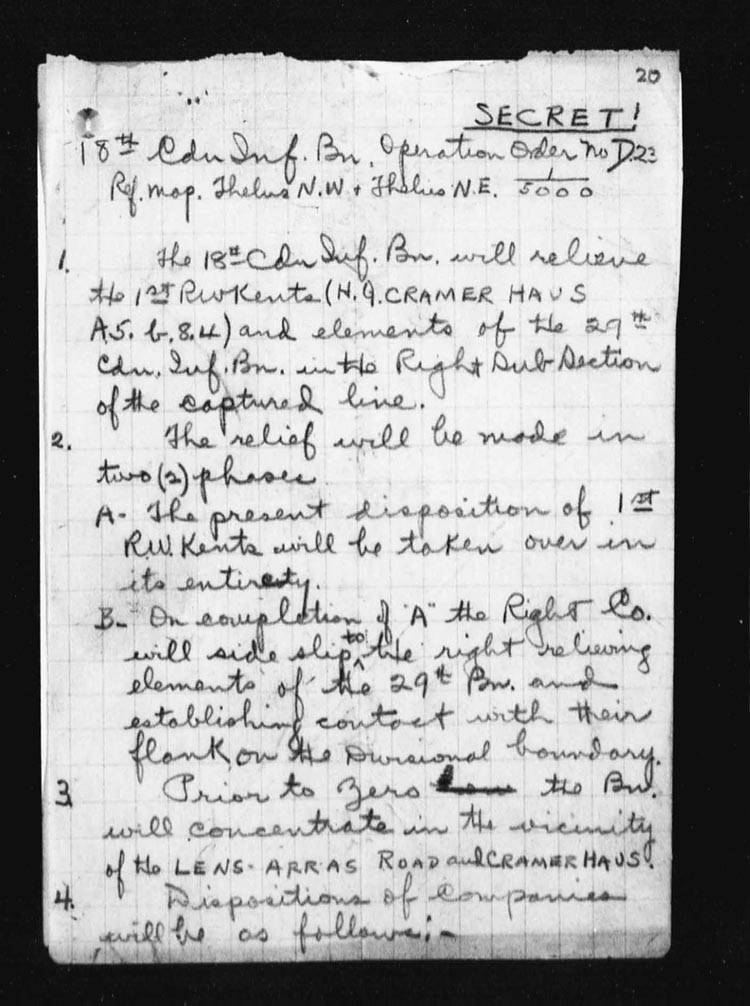 20
SECRET!
18th Cdn Inf. Bn. Operation Order No D.23
Ref. map. Thelus N.W. + Thelus N.E. 1/5000
1. The 18th Cdn Inf. Bn. will relieve
the 1st RW Kents (H.Q. CRAMER HAUS
A.5. b. 8.4) and elements of the 29th
Cdn. Inf. Bn. in the Right Sub Section
of the captured line.
2. The relief will be made in
two (2) phases
A- The present disposition of 1st
R.W. Kents will be taken over in
its entirety.
B- On completion of "A" the Right Co.
will side slip to the right relieving
elements of the 29th Bn. and
establishing contact with their
flank on the Divisional boundary.
3. Prior to Zero the Bn.
will concentrate in the vicinity
of the LENS-ARRAS ROAD and CRAMER HAUS.
4. Dispositions of Companies
will be as follows:-